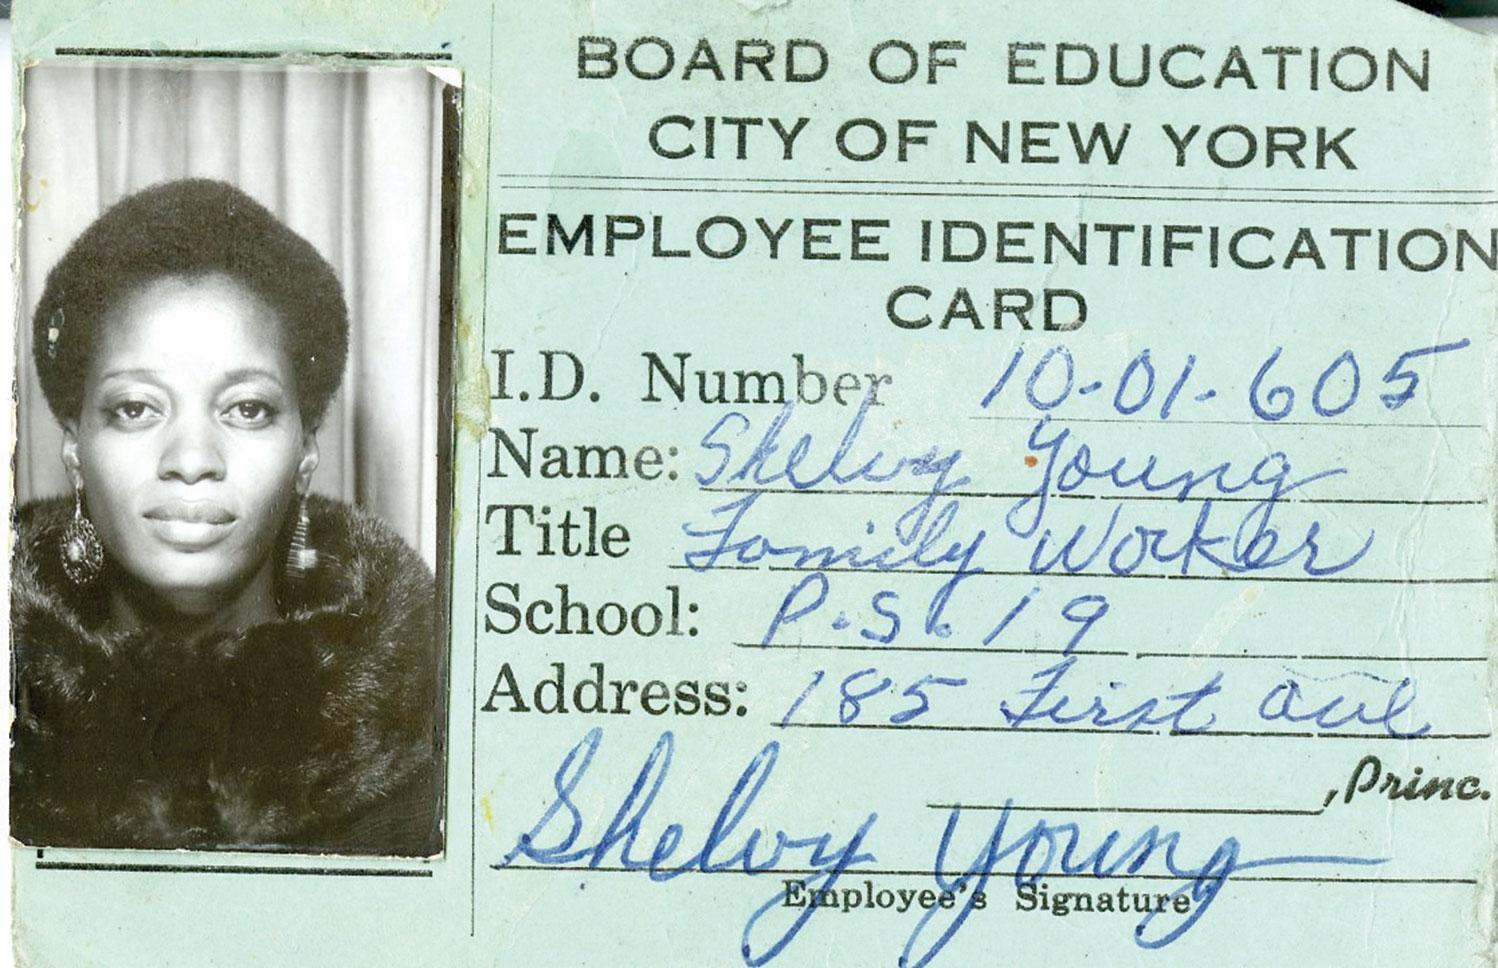 BOARD OF EDUCATION
CITY OF NEW YORK
EMPLOYEE IDENTIFICATION
CARD
I.D. Number 10-01-605
Name: Shelvy Young
Title Family Worker
School: P.S. 19
Address: 185 First Ave
, Princ.
Shelvy Young
Employee's Signature